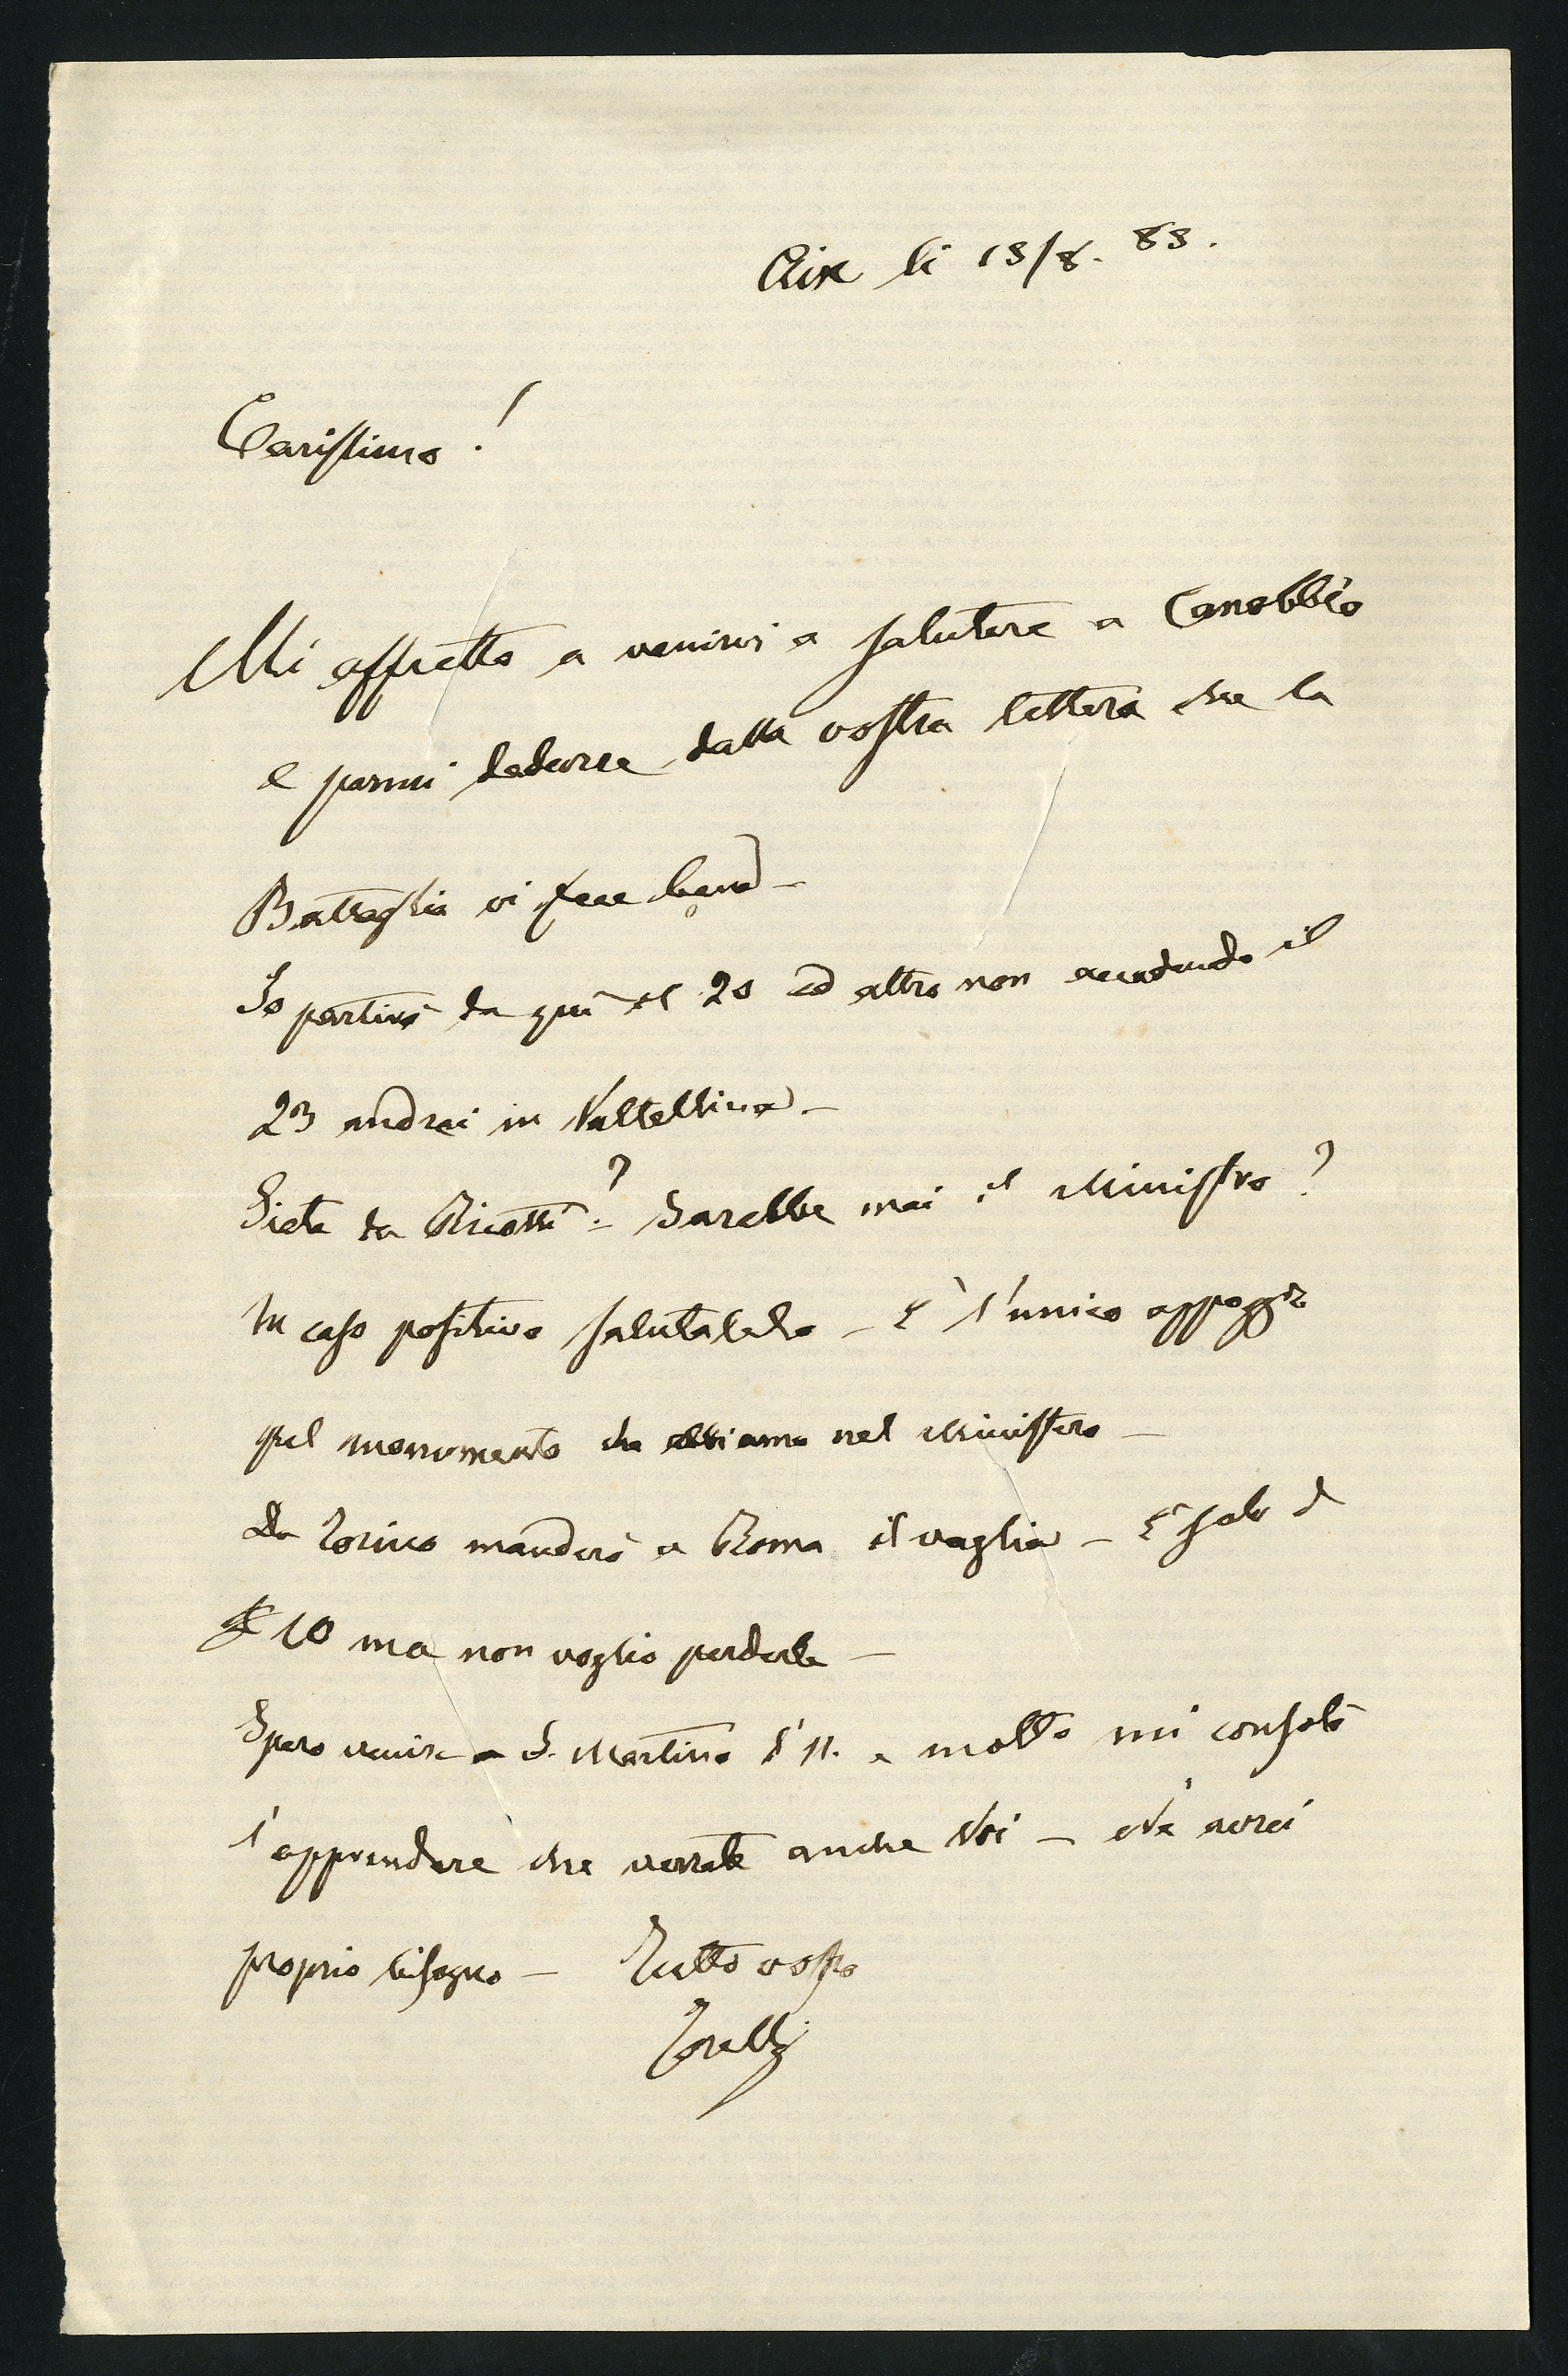 Aix li 13/8. 83.
Carissimo!
Mi affretto a venirvi a salutare a Canobbio
e parmi dedurre dalla vostra lettera che la
Battaglia vi fece bene –
Io partirò da qui il 20 ed altro non accadendo il
23 andrei in Valtellina –
Siete da Ricotti? Sarebbe mai il Ministro?
In caso positivo salutatelo – È l'unico appoggio
pel monumento che abbiamo nel Ministero –
Da Torino manderò a Roma il vaglia – È solo di
£ 10 ma non voglio perderle –
Spero venire a S. Martino l'11. e molto mi consolò
l'apprendere che verrete anche Voi – Ve n'avrei
proprio bisogno – Tutto vostro
Torelli